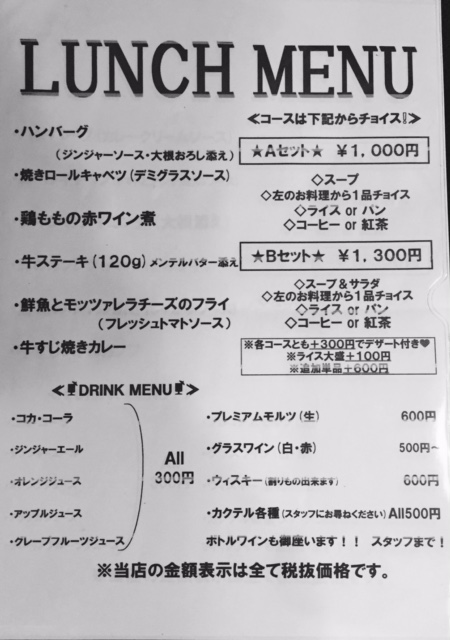 LUNCH MENU
≪コースは下記からチョイス!≫
・ハンバーグ
(ジンジャーソース・大根おろし添え)
★Aセット★ ￥1,000円
・焼きロールキャベツ(デミグラスソース)
◇スープ
◇左のお料理から1品チョイス
・鶏ももの赤ワイン煮
◇ライス or パン
◇コーヒー or 紅茶
・牛ステーキ(120g)メンテルバター添え
★Bセット★ ￥1,300円
◇スープ&サラダ
◇左のお料理から1品チョイス
・鮮魚とモッツァレラチーズのフライ
◇ライス or パン
(フレッシュトマトソース)
◇コーヒー or 紅茶
・牛すじ焼きカレー
※各コースとも+300円でデザート付き♥
※ライス大盛+100円
※追加単品+600円
≪DRINK MENU≫
・コカ・コーラ
・プレミアムモルツ(生) 600円
・ジンジャーエール
・グラスワイン(白・赤) 500円~
All
300円
・オレンジジュース
・ウィスキー(割りもの出来ます) 600円
・アップルジュース
・カクテル各種(スタッフにお尋ねください)All500円
・グレープフルーツジュース
ボトルワインも御座います!! スタッフまで!
※当店の金額表示は全て税抜価格です。